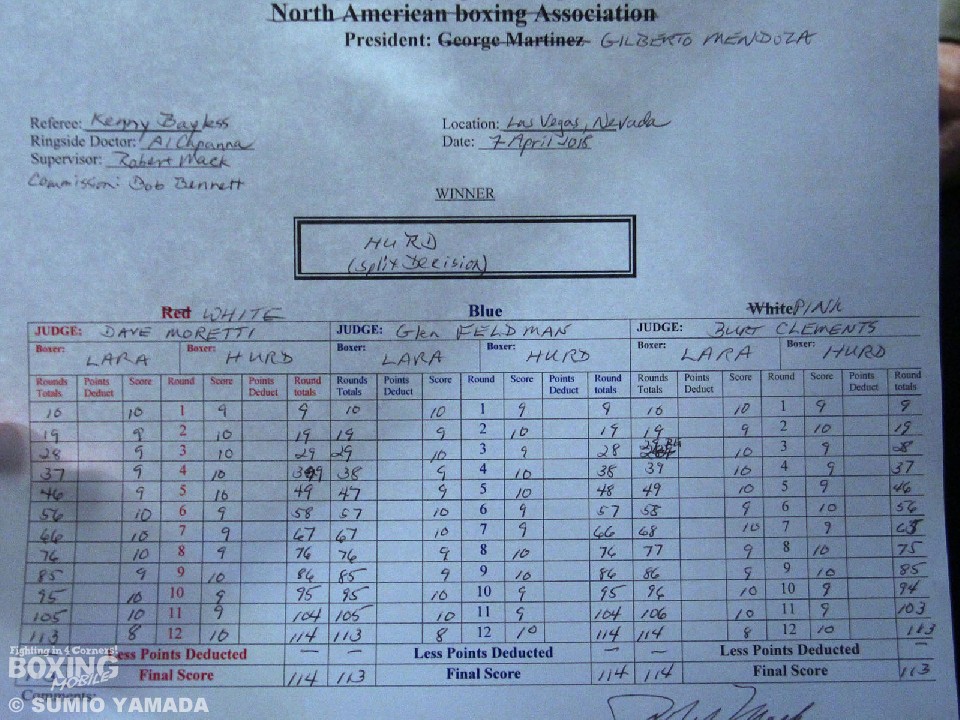 North American boxing Association
President: George Martinez GILBERTO MENDOZA
Referee: Kenny Bayless Location: Las Vegas, Nevada
Ringside Doctor: Al Capanna Date: 7 April 2018
Supervisor: Robert Mack
Commission: Bob Bennett
WINNER
HURD
(Split Decision)
Red WHITE Blue White PINK
JUDGE: DAVE MORETTI JUDGE: Glen FELDMAN JUDGE: BURT CLEMENTS
Boxer: LARA Boxer: HURD Boxer: LARA Boxer: HURD Boxer: LARA Boxer: HURD
Rounds Totals Points Deduct Score Round Score Points Deduct Round totals Rounds Totals Points Deduct Score Round Score Points Deduct Round totals Rounds Totals Points Deduct Score Round Score Points Deduct Round totals
10 10 1 9 9 10 10 1 9 9 10 10 1 9 9
19 9 2 10 19 19 9 2 10 19 19 9 2 10 19
28 9 3 10 29 29 10 3 9 28 29 10 3 9 28
37 9 4 10 39 38 9 4 10 38 39 10 4 9 37
46 9 5 10 49 47 9 5 10 48 49 10 5 9 46
56 10 6 9 58 57 10 6 9 57 58 9 6 10 56
66 10 7 9 67 67 10 7 9 66 68 10 7 9 65
76 10 8 9 76 76 9 8 10 76 77 9 8 10 75
85 9 9 10 86 85 9 9 10 86 86 9 9 10 85
95 10 10 9 95 95 10 10 9 95 96 10 10 9 94
105 10 11 9 104 105 10 11 9 104 106 10 11 9 103
113 8 12 10 114 113 8 12 10 114 114 8 12 10 113
Less Points Deducted — — Less Points Deducted — — Less Points Deducted —
Final Score 114 113 Final Score 114 114 Final Score 113
Comments:
Fighting in 4 Corners!
BOXING
MOBILE
© SUMIO YAMADA